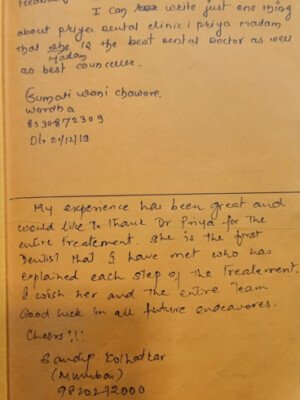 I can write just one thing
about priya dental clinic / priya madam
that she is the best dental doctor as well
madam
as best councellor.
Sumati wani chaware.
wardha
8530872309
Dt. 21/12/19
My experience has been great and
would like to thank Dr Priya for the
entire treatement. She is the first
Dentist that I have met who has
explained each step of the treatement.
I wish her and the entire Team
Good luck in all future endeavores.
Cheers!!!
Sandip Kolhatkar
(Mumbai)
9820272000